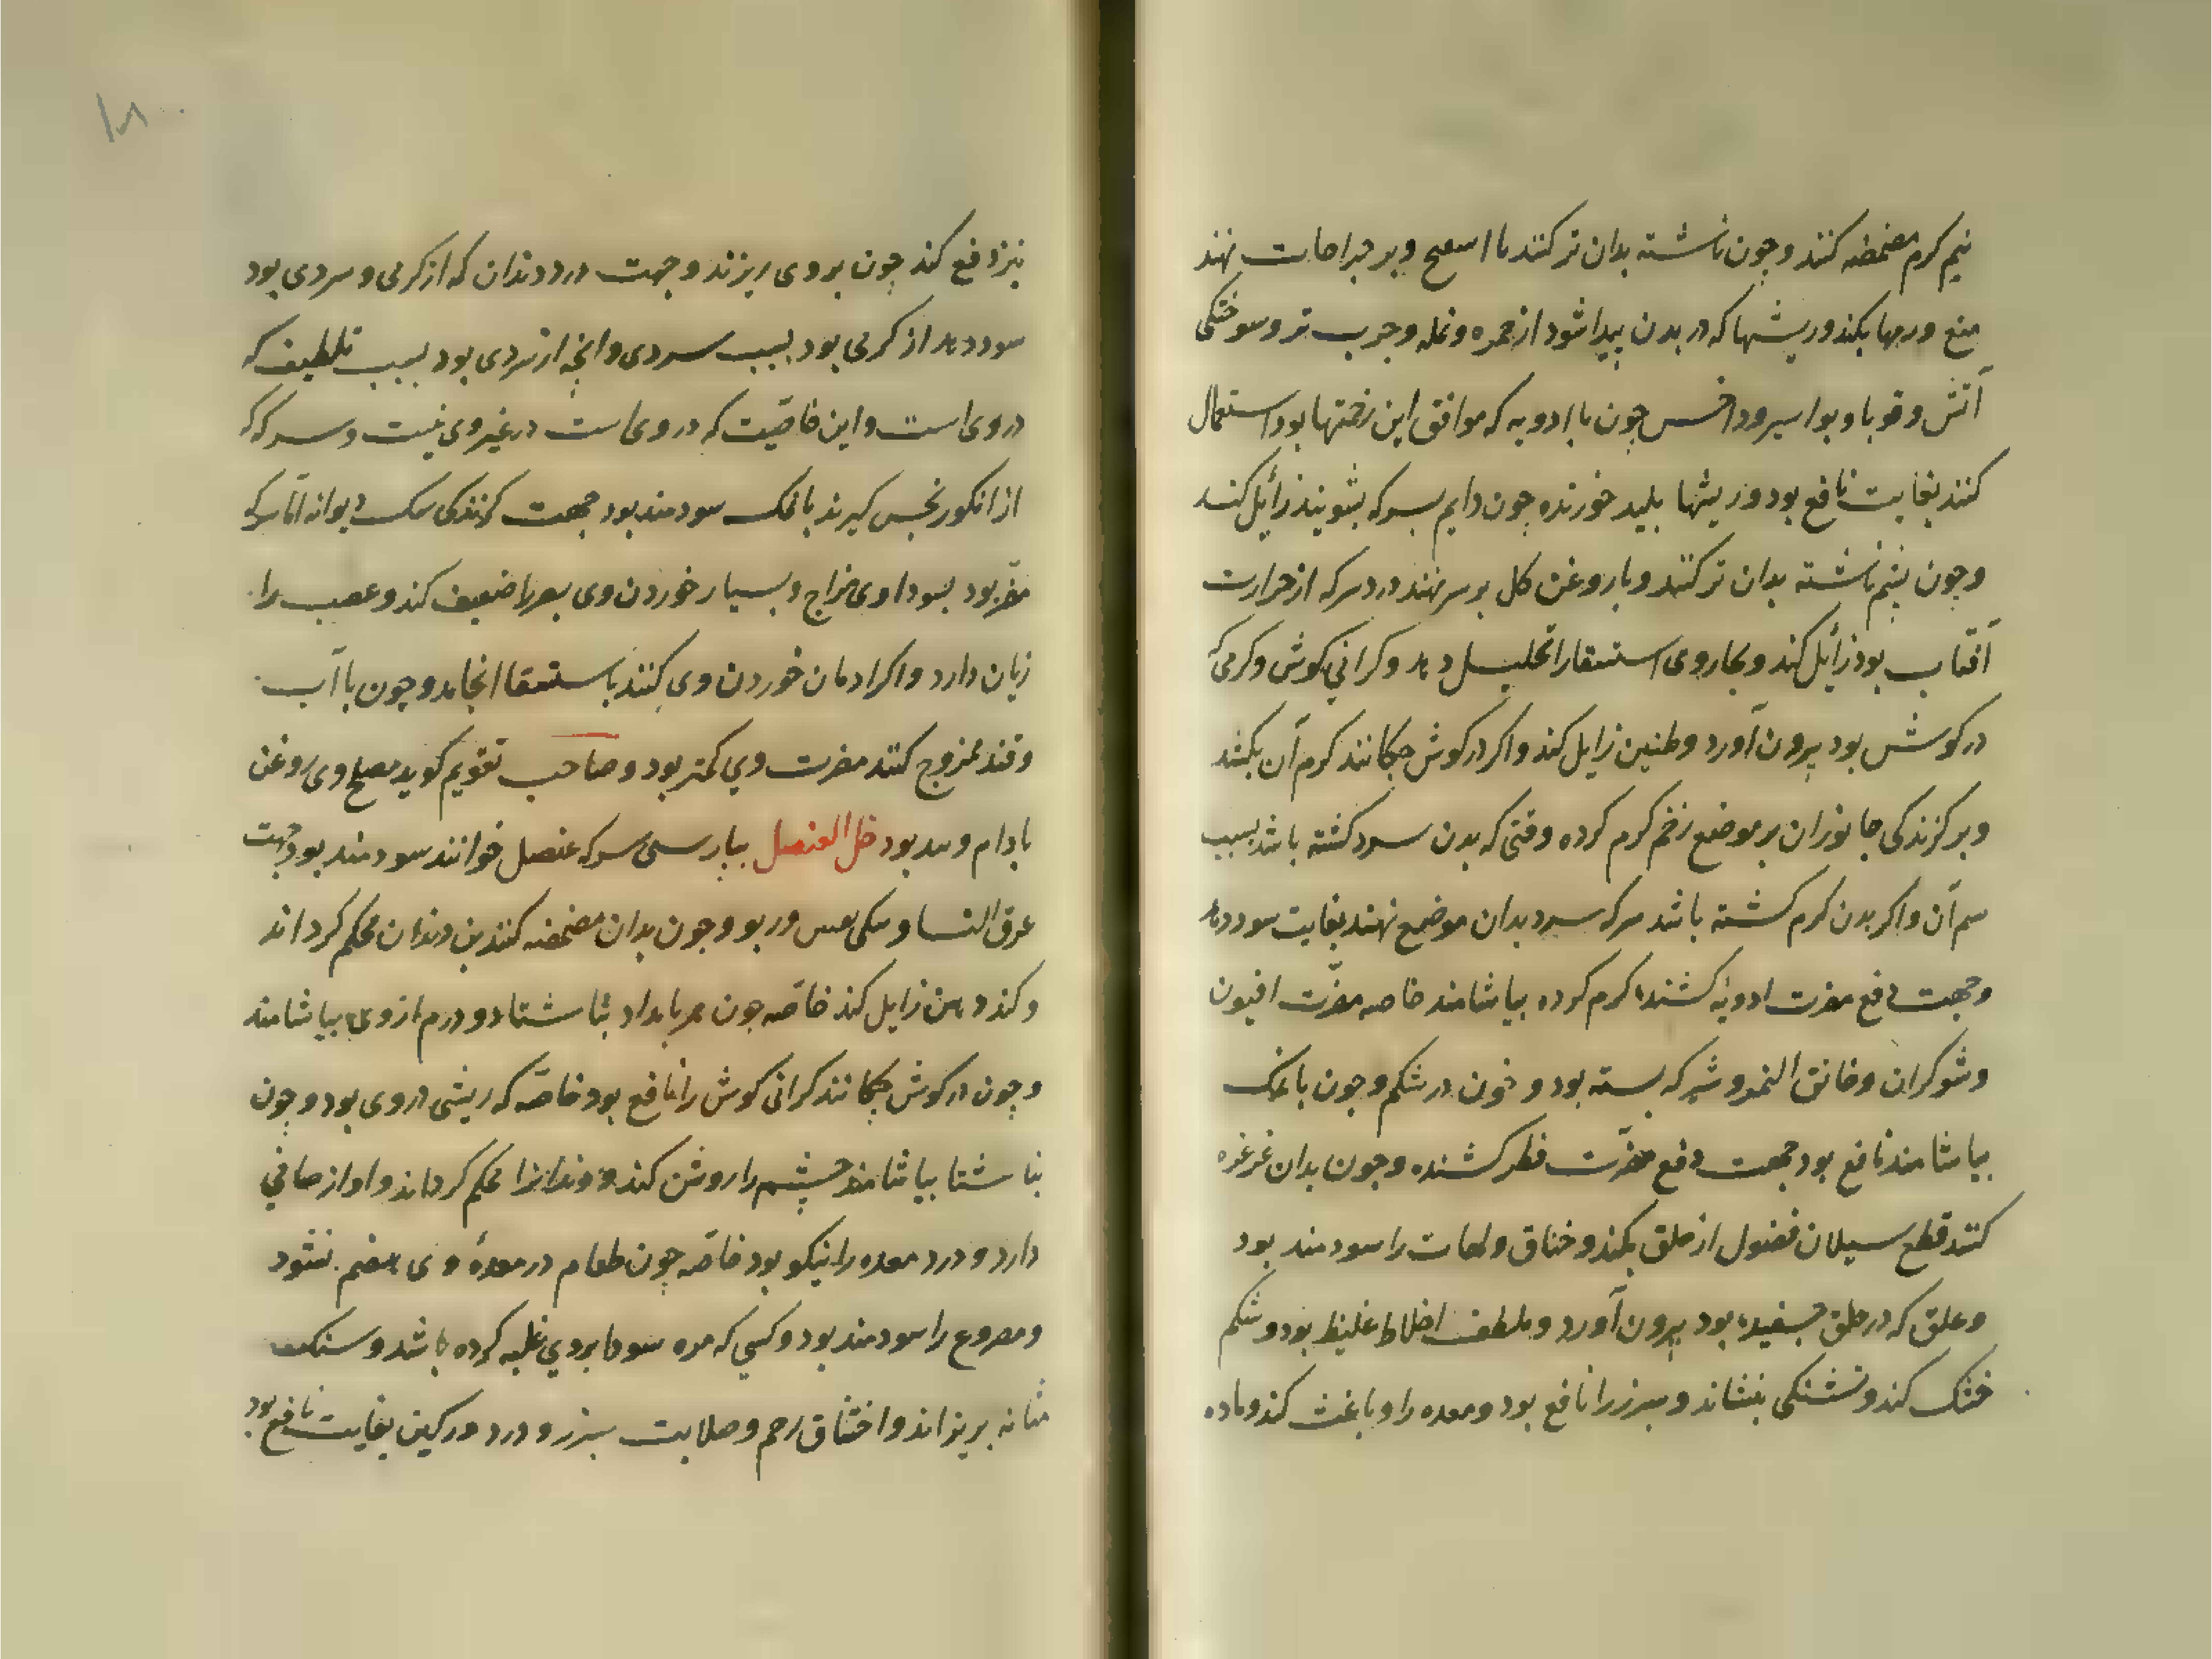 نیم کرم مضمضه کنند و چون ناشسته بدان تر کنند با اسفنج و بر جراحات نهند
منع ورمها بکند و ریشها که در بدن پیدا شود از حمره و نمله و جرب تر و سوختکی
آتش و قوبا و بواسیر و داخس چون با ادویه که موافق این زحمتها بود استعمال
کنند بغایت نافع بود و ریشها بلید خورنده چون دایم بسرکه بشویند زائل کند
و چون پشم ناشسته بدان تر کنند و با روغن کل بر سر نهند درد سر که از حرارت
آفتاب بود زائل کند و بخار وی استسقا را تحلیل دهد و کرانی کوش و کرمی که
در کوش بود بیرون آورد و طنین زایل کند و اکر در کوش چکانند کرم آن بکشد
و بر کزندکی جانوران بر موضع زخم کرم کرده وقتی که بدن سرد کشته باشد بسبب
سم آن و اکر بدن کرم کشته باشد سرکه سرد بدان موضع نهند بغایت سود دهد
و جهت دفع مضرت ادویهٔ کشنده کرم کرده بیاشامند خاصه مضرّت افیون
و شوکران و خانق النمر و شیر که بسته بود و خون در شکم و چون با نمک
بیاشامند نافع بود جهت دفع مضرّت فطر کشنده و چون بدان غرغره
کنند قطع سیلان فضول از حلق بکند و خناق و لهات را سودمند بود
و علق که در حلق چسفیده بود بیرون آورد و ملطف اخلاط غلیظ بود و شکم
خشک کند و تشنکی بنشاند و سبرز را نافع بود و معده را دباغت کند و ماده
۱۸۰
نزف دفع کند چون بر وی ریزند و جهت درد دندان که از کرمی و سردی بود
سود دهد از کرمی بود بسبب سردی و آنچه از سردی بود بسبب تلطیف که
در وی است و این خاصّیت که در وی است در غیر وی نیست و سرکه که
از انکور نجس کیرند با نمک سودمند بود جهت کزندکی سک دیوانه امّا سرکه
مضر بود بسوداوی مزاج و بسیار خوردن وی بصر را ضعیف کند و عصب را
زیان دارد و اکر ادمان خوردن وی کنند باستسقا انجامد و چون با آب
و قند ممزوج کنند مضرت وی کمتر بود و صاحب تقویم کوید مصلح وی روغن
بادام و قند بود خل العنصل ببارسی سرکه عنصل خوانند سودمند بود جهت
عرق النسا و تنکی نفس و ربو و چون بدان مضمضه کنند بن دندان محکم کرداند
و کند دهن زایل کند خاصّه چون هر بامداد بناشتا دو درم از وی بیاشامند
و چون در کوش چکانند کرانی کوش را نافع بود خاصّه که ریشی در وی بود و چون
بناشتا بیاشامند چشم را روشن کند و دندانرا محکم کرداند و آواز صافی
دارد و درد معده را نیکو بود خاصّه چون طعام در معدهٔ وی هضم نشود
و مصروع را سودمند بود و کسی که مره سودا بر وی غلبه کرده باشد و سنک
مثانه بریزاند و اختناق رحم و صلابت سبرز و درد ورکین بغایت نافع بود